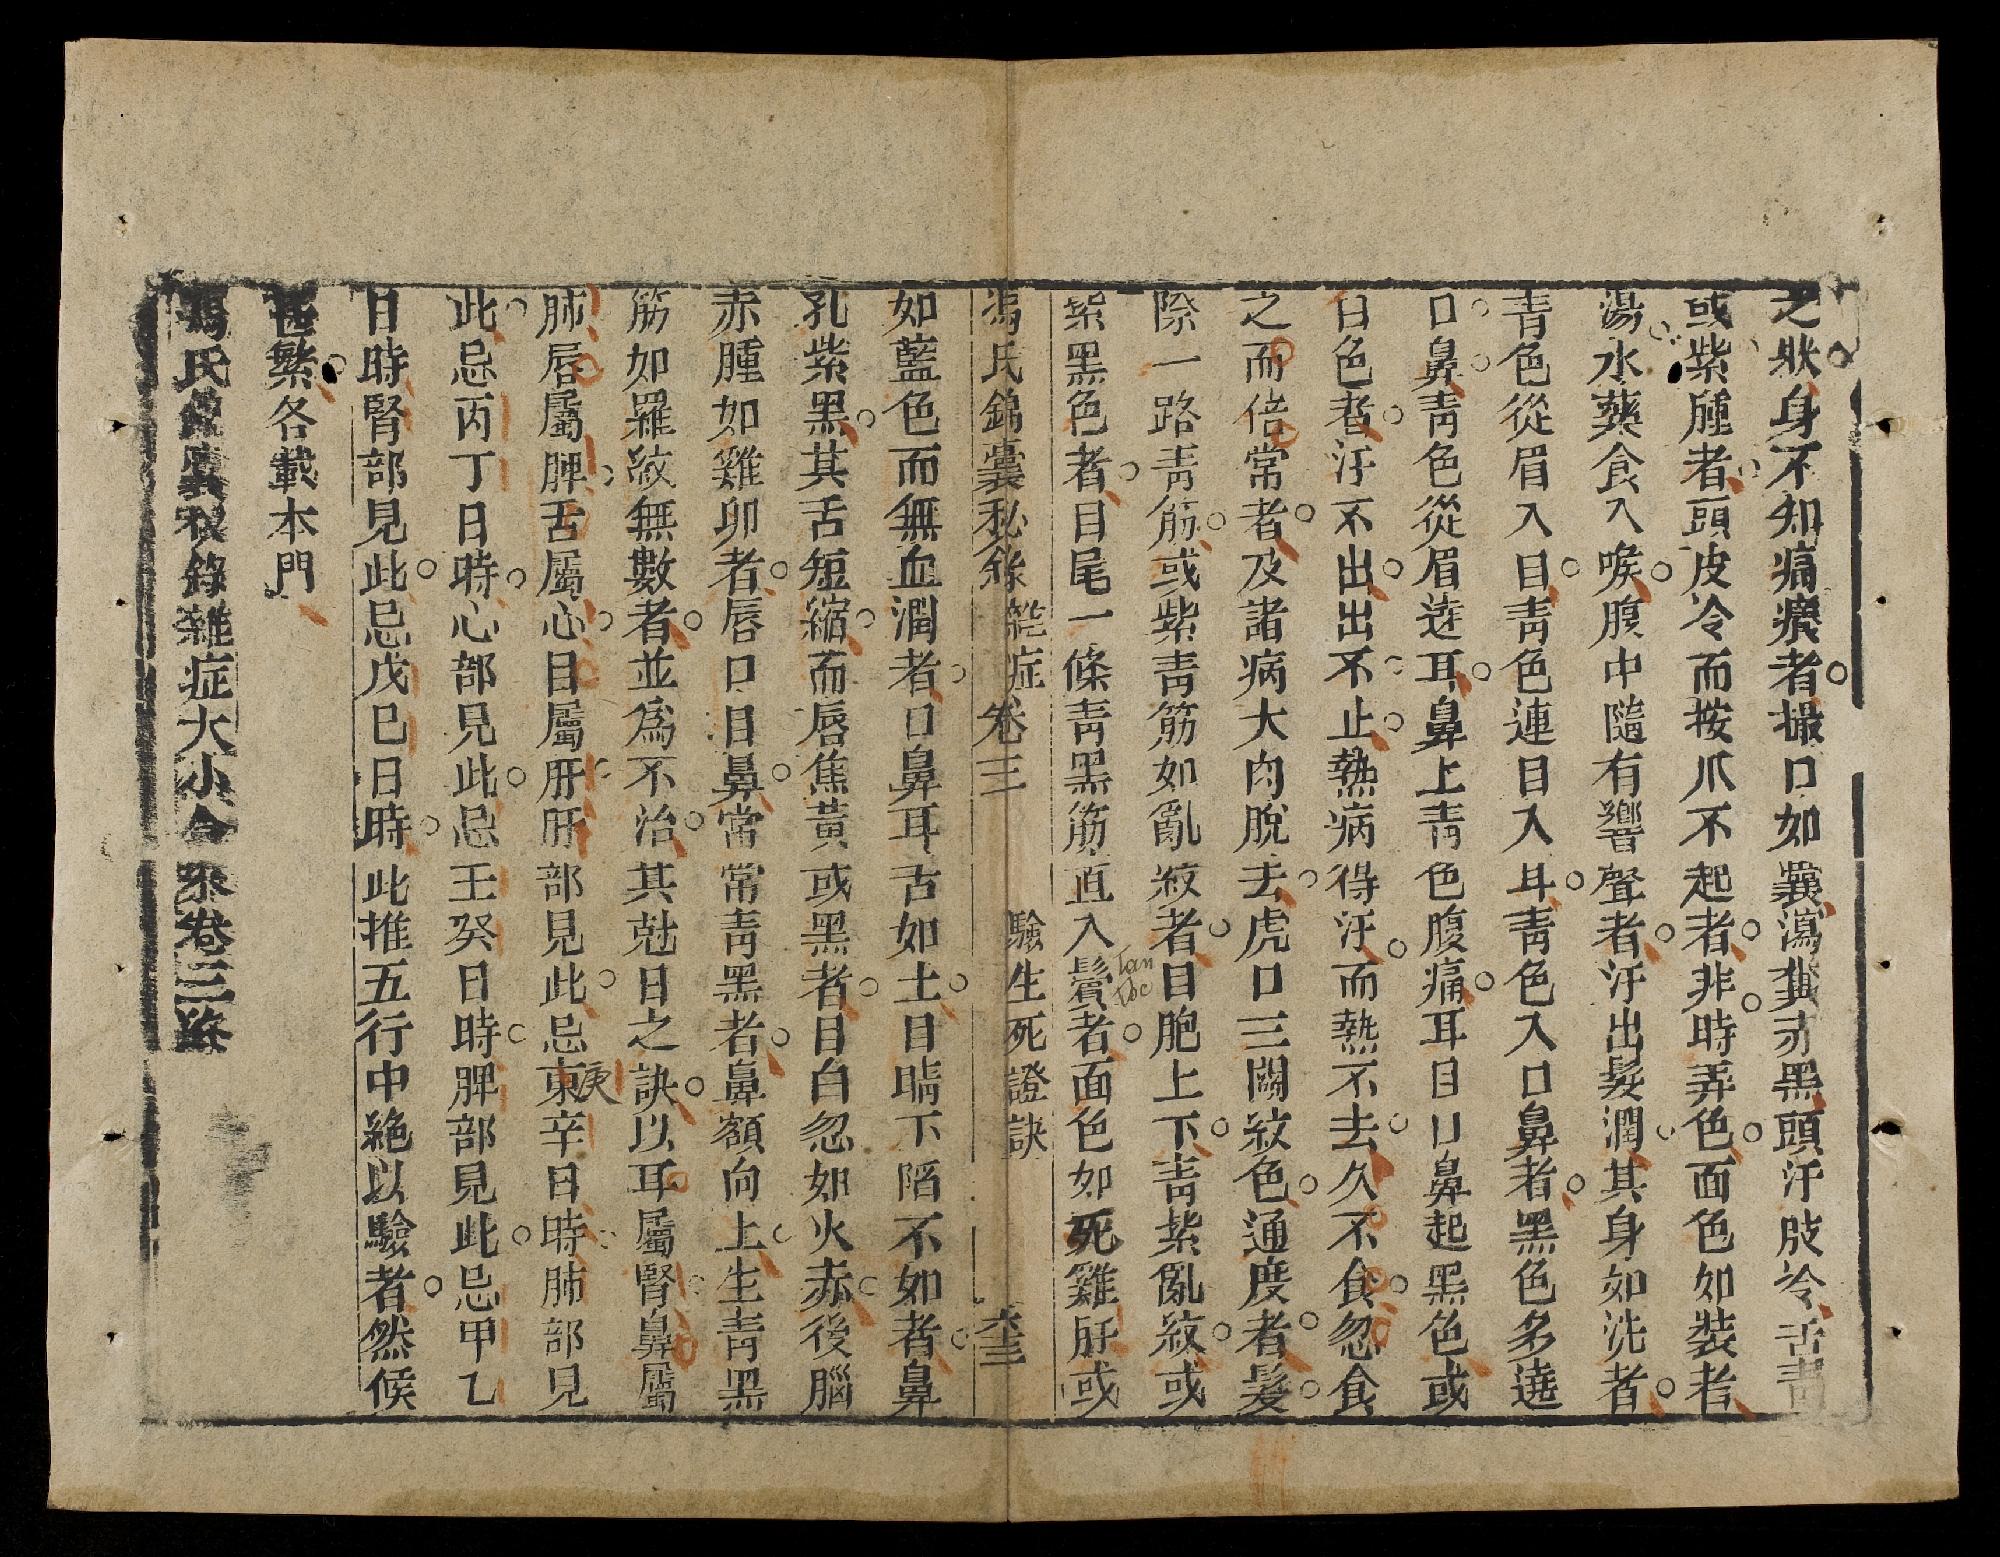 之狀身不知痛癢者撮口如囊瀉糞赤黑頭汗肢冷舌靑
或紫腫者頭皮冷而按爪不起者非時弄色面色如裝者
湯水藥食入喉腹中隨有響聲者汗出髮潤其身如洗者
靑色從眉入目靑色連目入耳靑色入口鼻者黑色多遶
口鼻靑色從眉遶耳鼻上靑色腹痛耳目口鼻起黑色或
白色者汗不出出不止熱病得汗而熱不去久不食忽食
之而倍常者及諸病大肉脫去虎口三關紋色通度者髮
際一路靑筋或紫靑筋如亂紋者目胞上下靑紫亂紋或
紫黑色者目尾一條靑黑筋直入鬢者面色如死雞肝或
tan tóc
馮氏錦囊秘錄 雜症卷三 驗生死證訣 六三
如藍色而無血潤者口鼻耳舌如土目睛下陷不如者鼻
孔紫黑其舌短縮而唇焦黃或黑者目白忽如火赤後腦
赤腫如雞卵者唇口目鼻常常靑黑者鼻額向上生靑黑
筋如羅紋無數者並爲不治其尅日之訣以耳屬腎鼻屬
肺唇屬脾舌屬心目屬肝肝部見此忌東辛日時肺部見
庚
此忌丙丁日時心部見此忌壬癸日時脾部見此忌甲乙
日時腎部見此忌戊巳日時此推五行中絶以驗者然候
甚繁各載本門
馮氏錦囊秘錄雜症大小合參卷三終